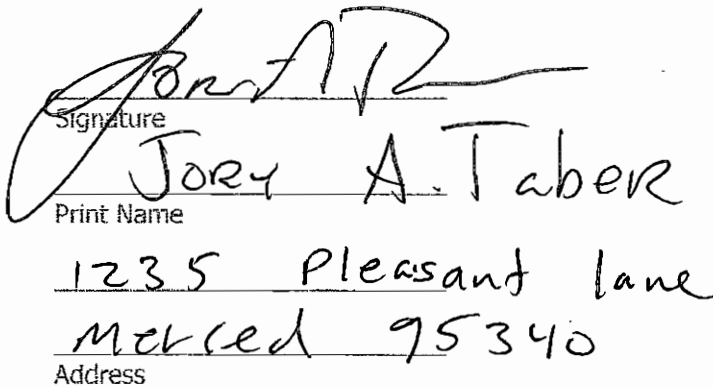 Jory A T
Signature
Jory A. Taber
Print Name
1235 Pleasant lane
Merced 95340
Address